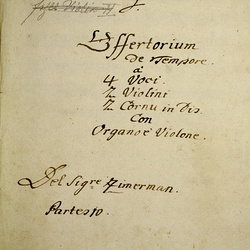 Offertorium
de Tempore.
à
4 Voci.
2 Violini
2 Cornu in Dis
Con
Organo è Violone.
Del Sigre Zimerman.
Partes 10.